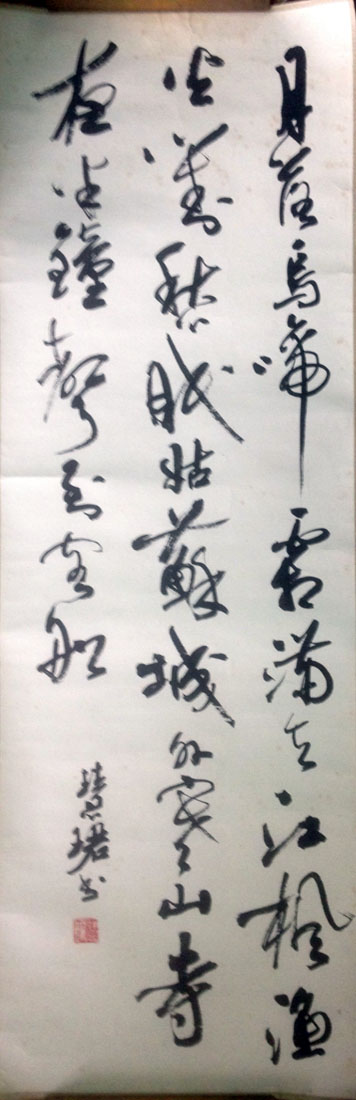 月落烏啼霜滿天江楓漁
火對愁眠姑蘇城外寒山寺
夜半鐘聲到客船
慧珺书